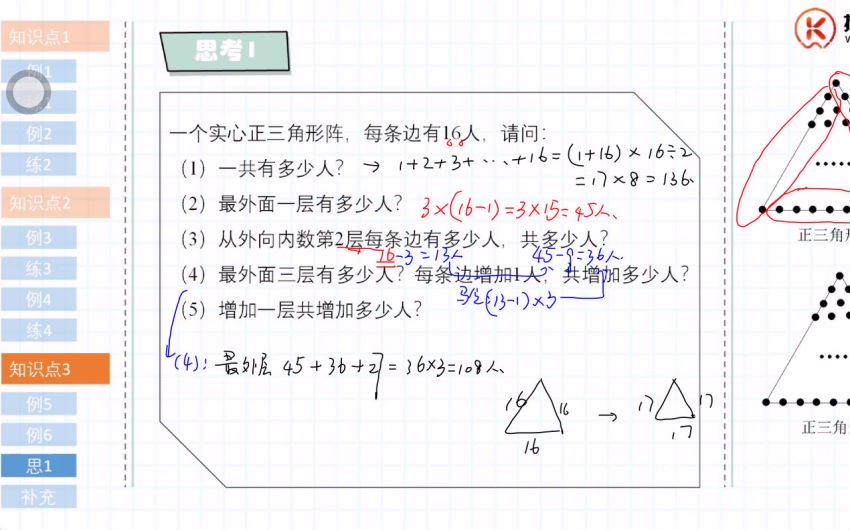 知识点1
例1
例2
练2
知识点2
例3
练3
例4
练4
知识点3
例5
例6
思1
补充
思考1
一个实心正三角形阵，每条边有16人，请问：
(1) 一共有多少人？ → 1+2+3+…+16=(1+16)×16÷2
=17×8=136.
(2) 最外面一层有多少人？ 3×(16-1)=3×15=45人.
(3) 从外向内数第2层每条边有多少人，共多少人？
16-3=13人 45-9=36人.
(4) 最外面三层有多少人？每条边增加1人，共增加多少人？
(13-1)×3
(5) 增加一层共增加多少人？
(4): 最外层 45+36+27=36×3=108人.
16 16 → 17 17
16 17
K
正三角形
正三角